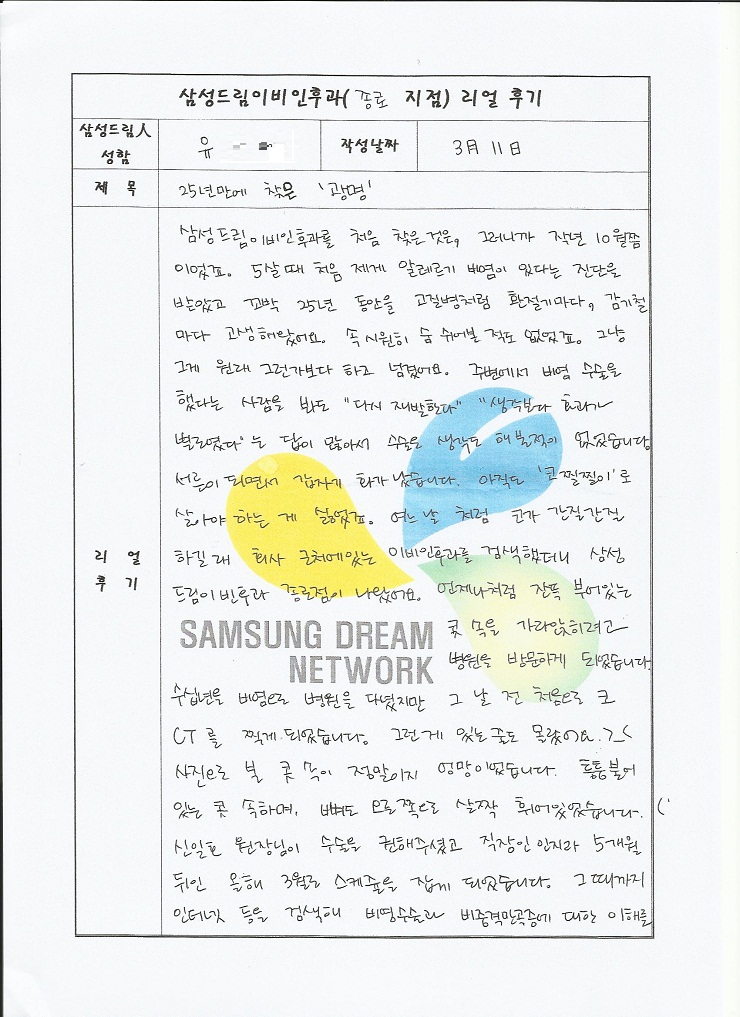 삼성드림이비인후과(종로 지점) 리얼 후기
삼성드림人 성함
유
작성날짜
3月 11日
제 목
25년만에 찾은 '광명'
리 얼
후 기
삼성드림이비인후과를 처음 찾은것은, 그러니까 작년 10월쯤
이었죠. 5살때 처음 제게 알레르기 비염이 있다는 진단을
받았고 꼬박 25년 동안을 고질병처럼 환절기마다, 감기철
마다 고생해왔어요. 속 시원히 숨 쉬어본 적도 없었죠. 그냥
그게 원래 그런가보다 하고 넘겼어요. 주변에서 비염 수술을
했다는 사람을 봐도 "다시 재발한다" "생각보다 효과가
별로였다"는 답이 많아서 수술은 생각도 해본적이 없었습니다
서른이 되면서 갑자기 화가 났습니다. 아직도 '코찔찔이'로
살아야 하는 게 싫었죠. 어느날 처럼 코가 간질간질
하길래 회사 근처에있는 이비인후과를 검색했더니 삼성
드림이빈후과 종로점이 나왔어요. 언제나처럼 잔뜩 부어있는
콧 속을 가라앉히려고
병원을 방문하게 되었습니다.
SAMSUNG DREAM
NETWORK
수십년을 비염으로 병원을 다녔지만 그 날 전 처음으로 코
CT를 찍게 되었습니다. 그런게 있는 줄도 몰랐어요.
사진으로 본 콧 속이 정말이지 엉망이었습니다. 퉁퉁불어
있는 콧 속하며, 뼈도 오른쪽으로 살짝 휘어있었습니다.
신일호 원장님이 수술을 권해주셨고 직장인 인지라 5개월
뒤인 올해 3월로 스케쥴을 잡게 되었습니다. 그때까지
인터넷 등을 검색해 비염수술과 비중격만곡증에 대한 이해를